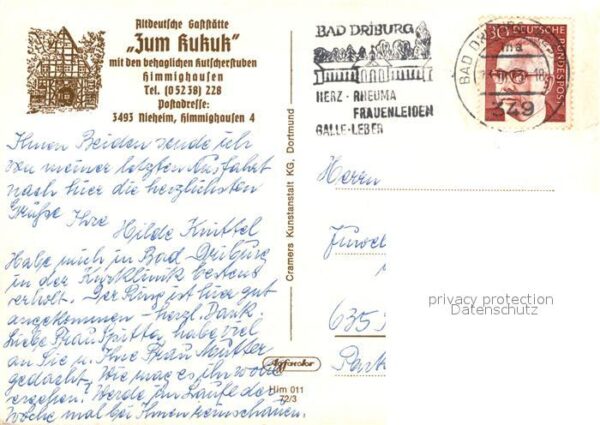 Altdeutsche Gaststätte
„Zum Kukuk"
mit den behaglichen Kutscherstuben
Himmighausen
Tel. (05238) 228
Postadresse:
3493 Nieheim, Himmighausen 4
Ihnen Beiden sende ich
von meiner letzten Ausfahrt
nach hier die herzlichsten
Grüße Ihre
Hilde Knittel
Habe mich in Bad Driburg
in der Kurzklinik bestens
erholt. Der Ring ist hier gut
angekommen - herzl. Dank.
Liebe Frau habe viel
an Sie u. Ihre Frau Mutter
gedacht. Wie mag es ihr wohl
ergehen? Werde im Laufe der
Woche mal bei Ihnen hereinschauen.
Cramers Kunstanstalt KG, Dortmund
Afficolor
Him 011
72/3
BAD DRIBURG
HERZ - RHEUMA
FRAUENLEIDEN
GALLE-LEBER
BAD
349
30
DEUTSCHE BUNDESPOST
Herrn
Juwel
635
Park
privacy protection
Datenschutz